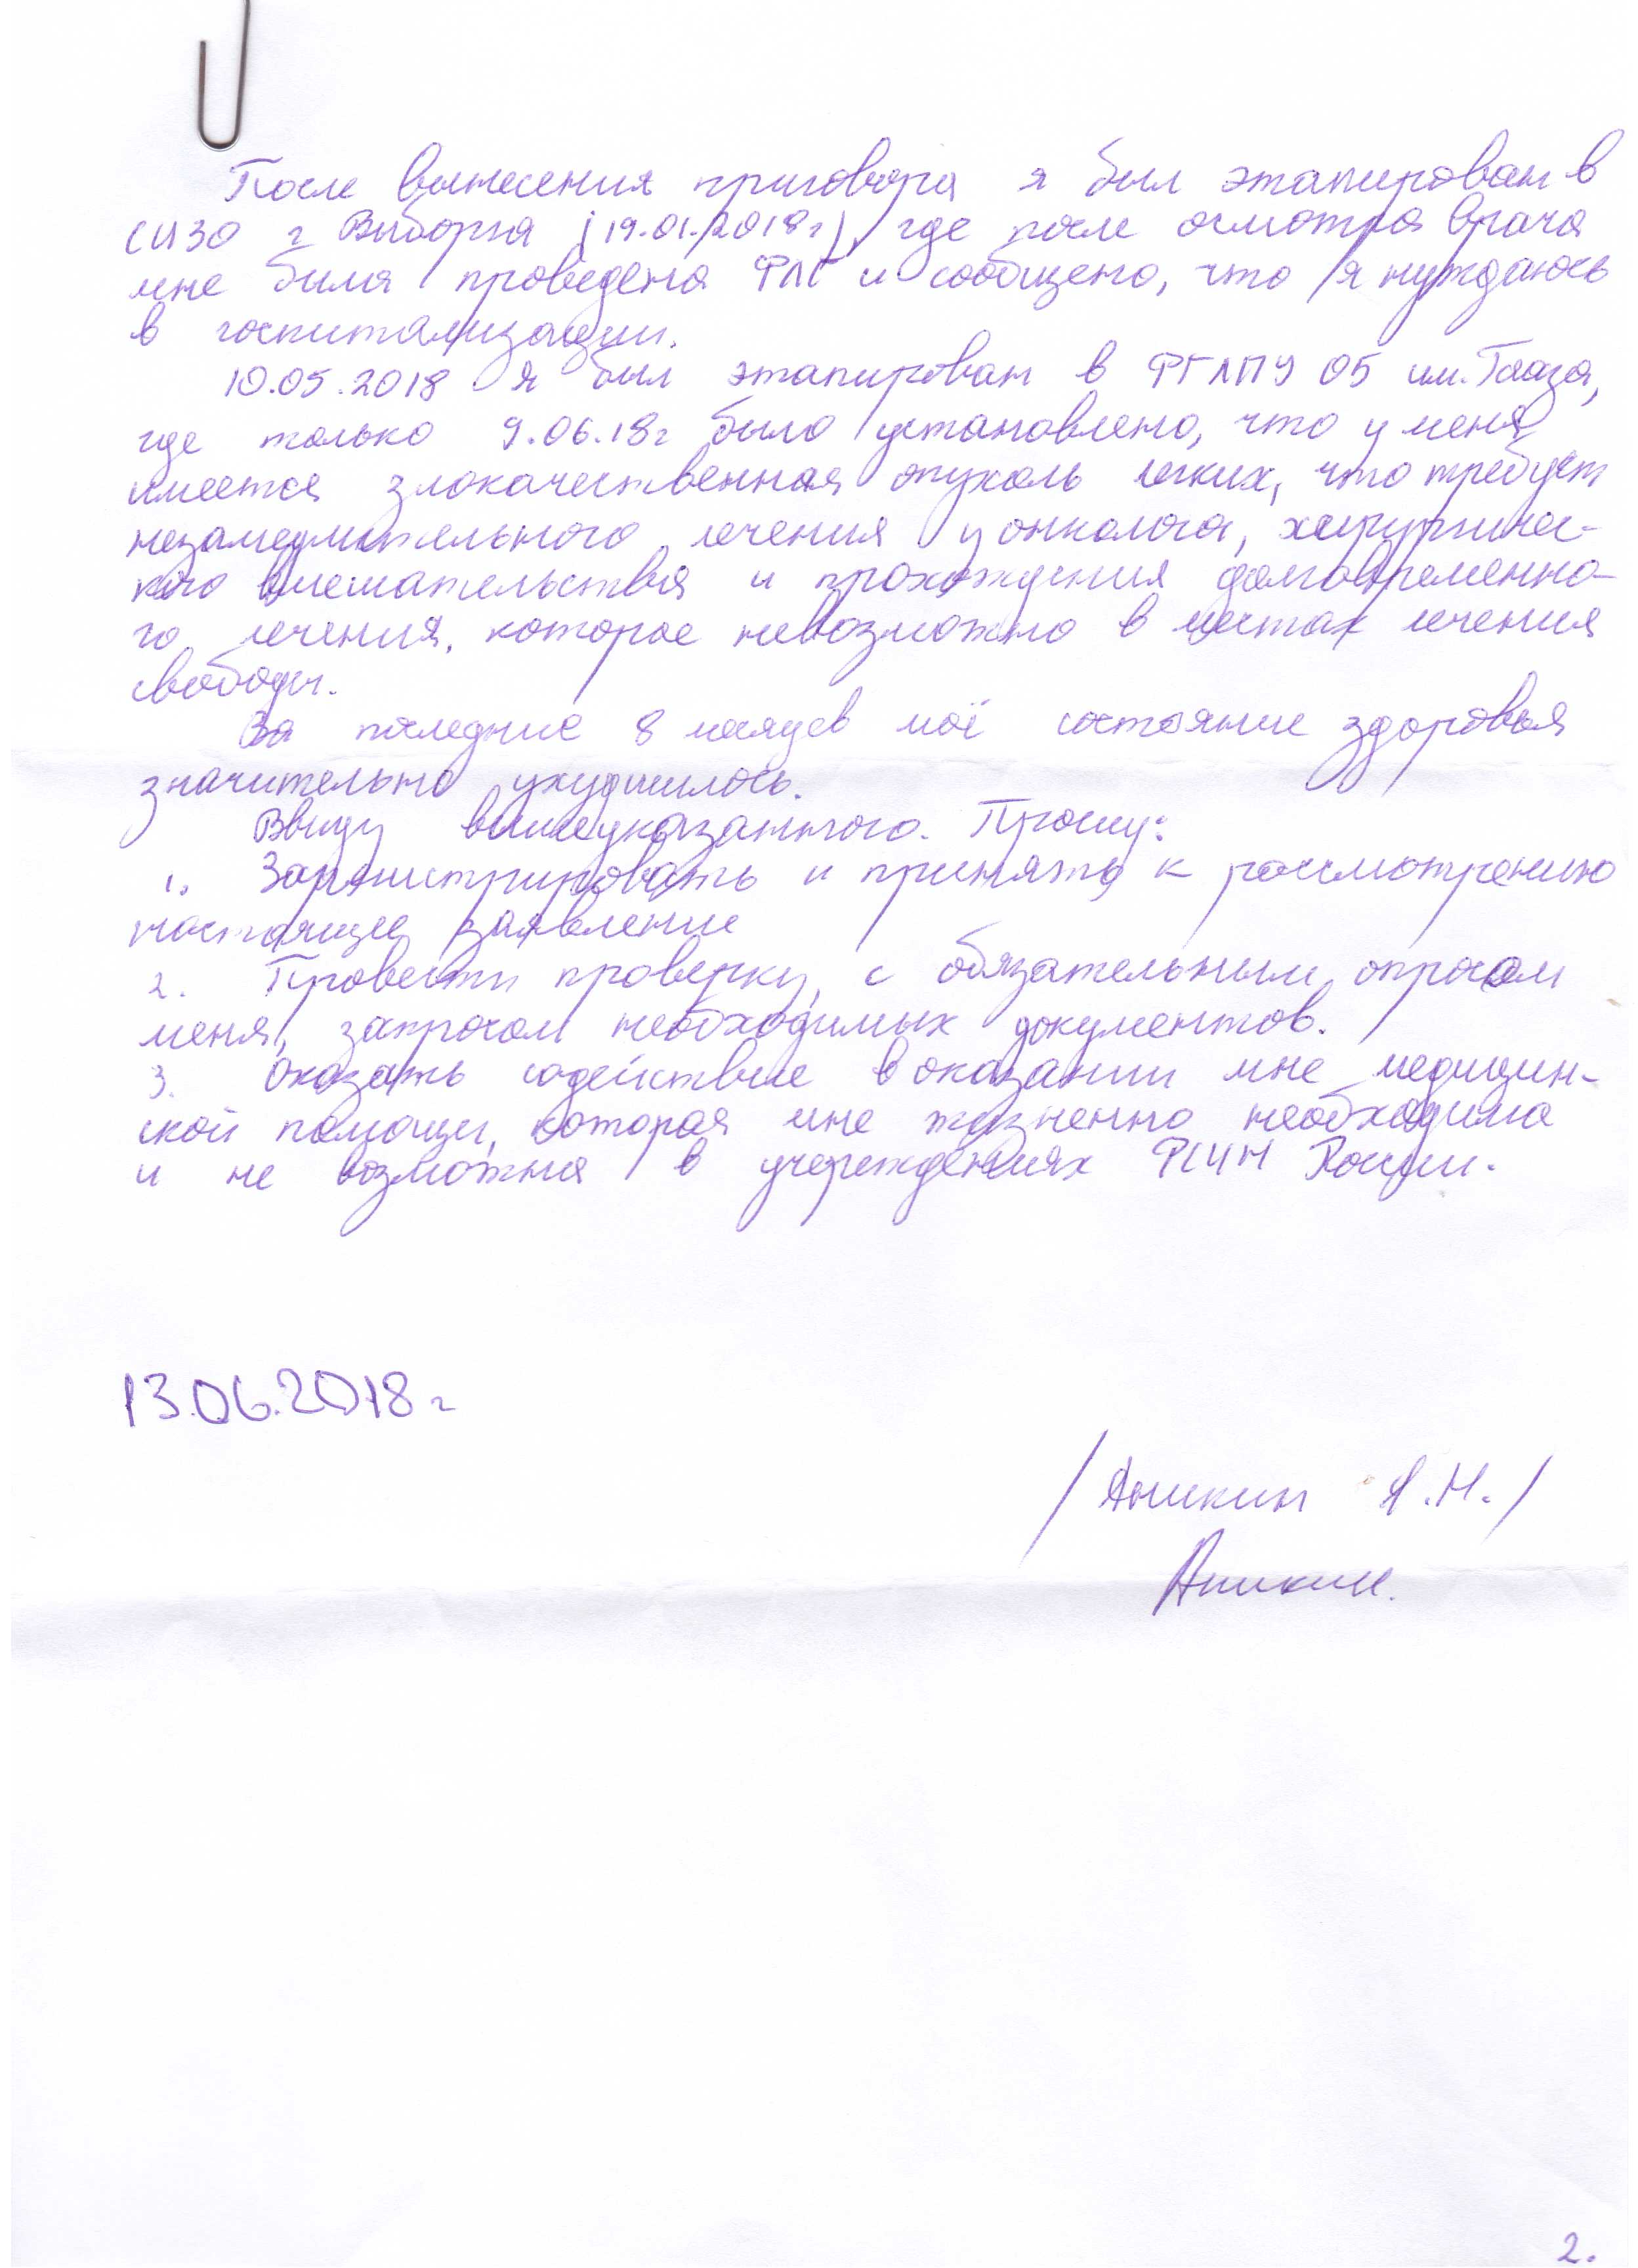 После вынесения приговора я был этапирован в
СИЗО г Выборга (19.01.2018г), где после осмотра врача
мне была проведена ФЛГ и сообщено, что я нуждаюсь
в госпитализации.
10.05.2018 я был этапирован в ФГЛПУ ОБ им. Гааза,
где только 9.06.18г было установлено, что у меня
имеется злокачественная опухоль легких, что требует
незамедлительного лечения у онколога, хирургичес-
кого вмешательства и прохождения долговременно-
го лечения, которое невозможно в местах лечения
свободы.
За последние 8 месяцев моё состояние здоровья
значительно ухудшилось.
Ввиду вышеуказанного. Прошу:
1. Зарегистрировать и принять к рассмотрению
настоящее заявление
2. Провести проверку, с обязательным опросом
меня, запросом необходимых документов.
3. Оказать содействие в оказании мне медицин-
ской помощи, которая мне жизненно необходима
и не возможна в учереждениях ФСИН России.
13.06.2018г
/Аникин А.Н./
Аникин.
2.